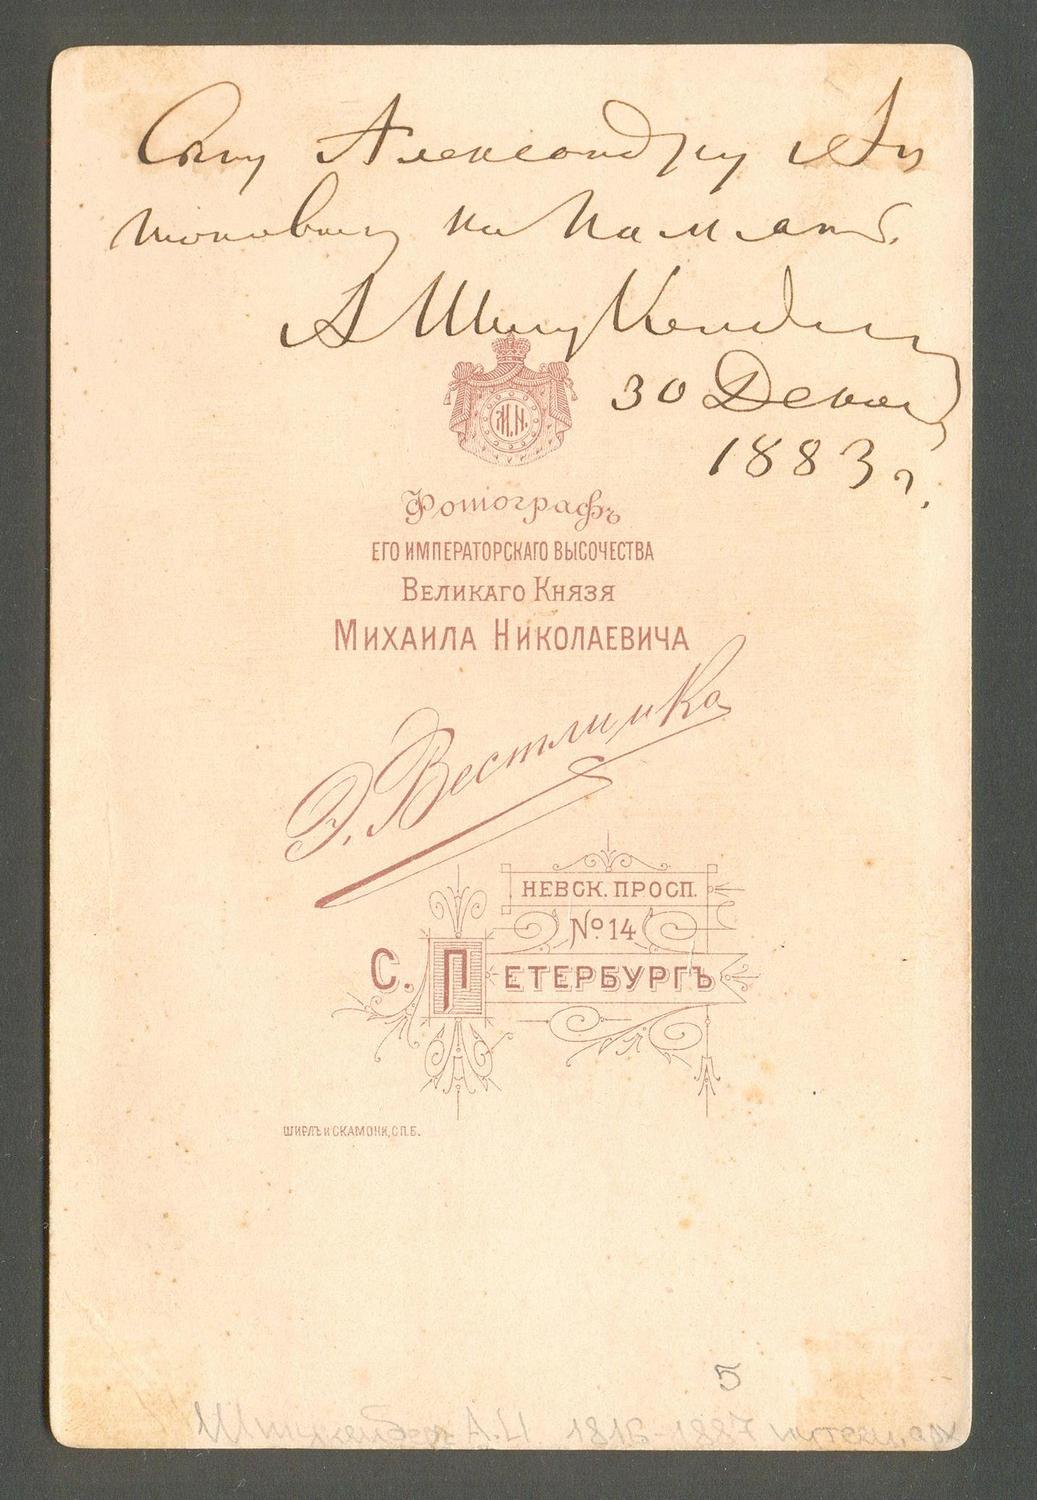 Сыну Александру Ан
тоновичу на память
А Штукенберг
30 Декаб
1883 г.
М.N.
Фотографъ
ЕГО ИМПЕРАТОРСКАГО ВЫСОЧЕСТВА
ВЕЛИКАГО КНЯЗЯ
МИХАИЛА НИКОЛАЕВИЧА
Э. Вестли
НЕВСК. ПРОСП.
№ 14
С. ПЕТЕРБУРГЪ
ШИРЛЪ и СКАМОНИ, СП.Б.
5
Штукенберг А.И. 1816-1887